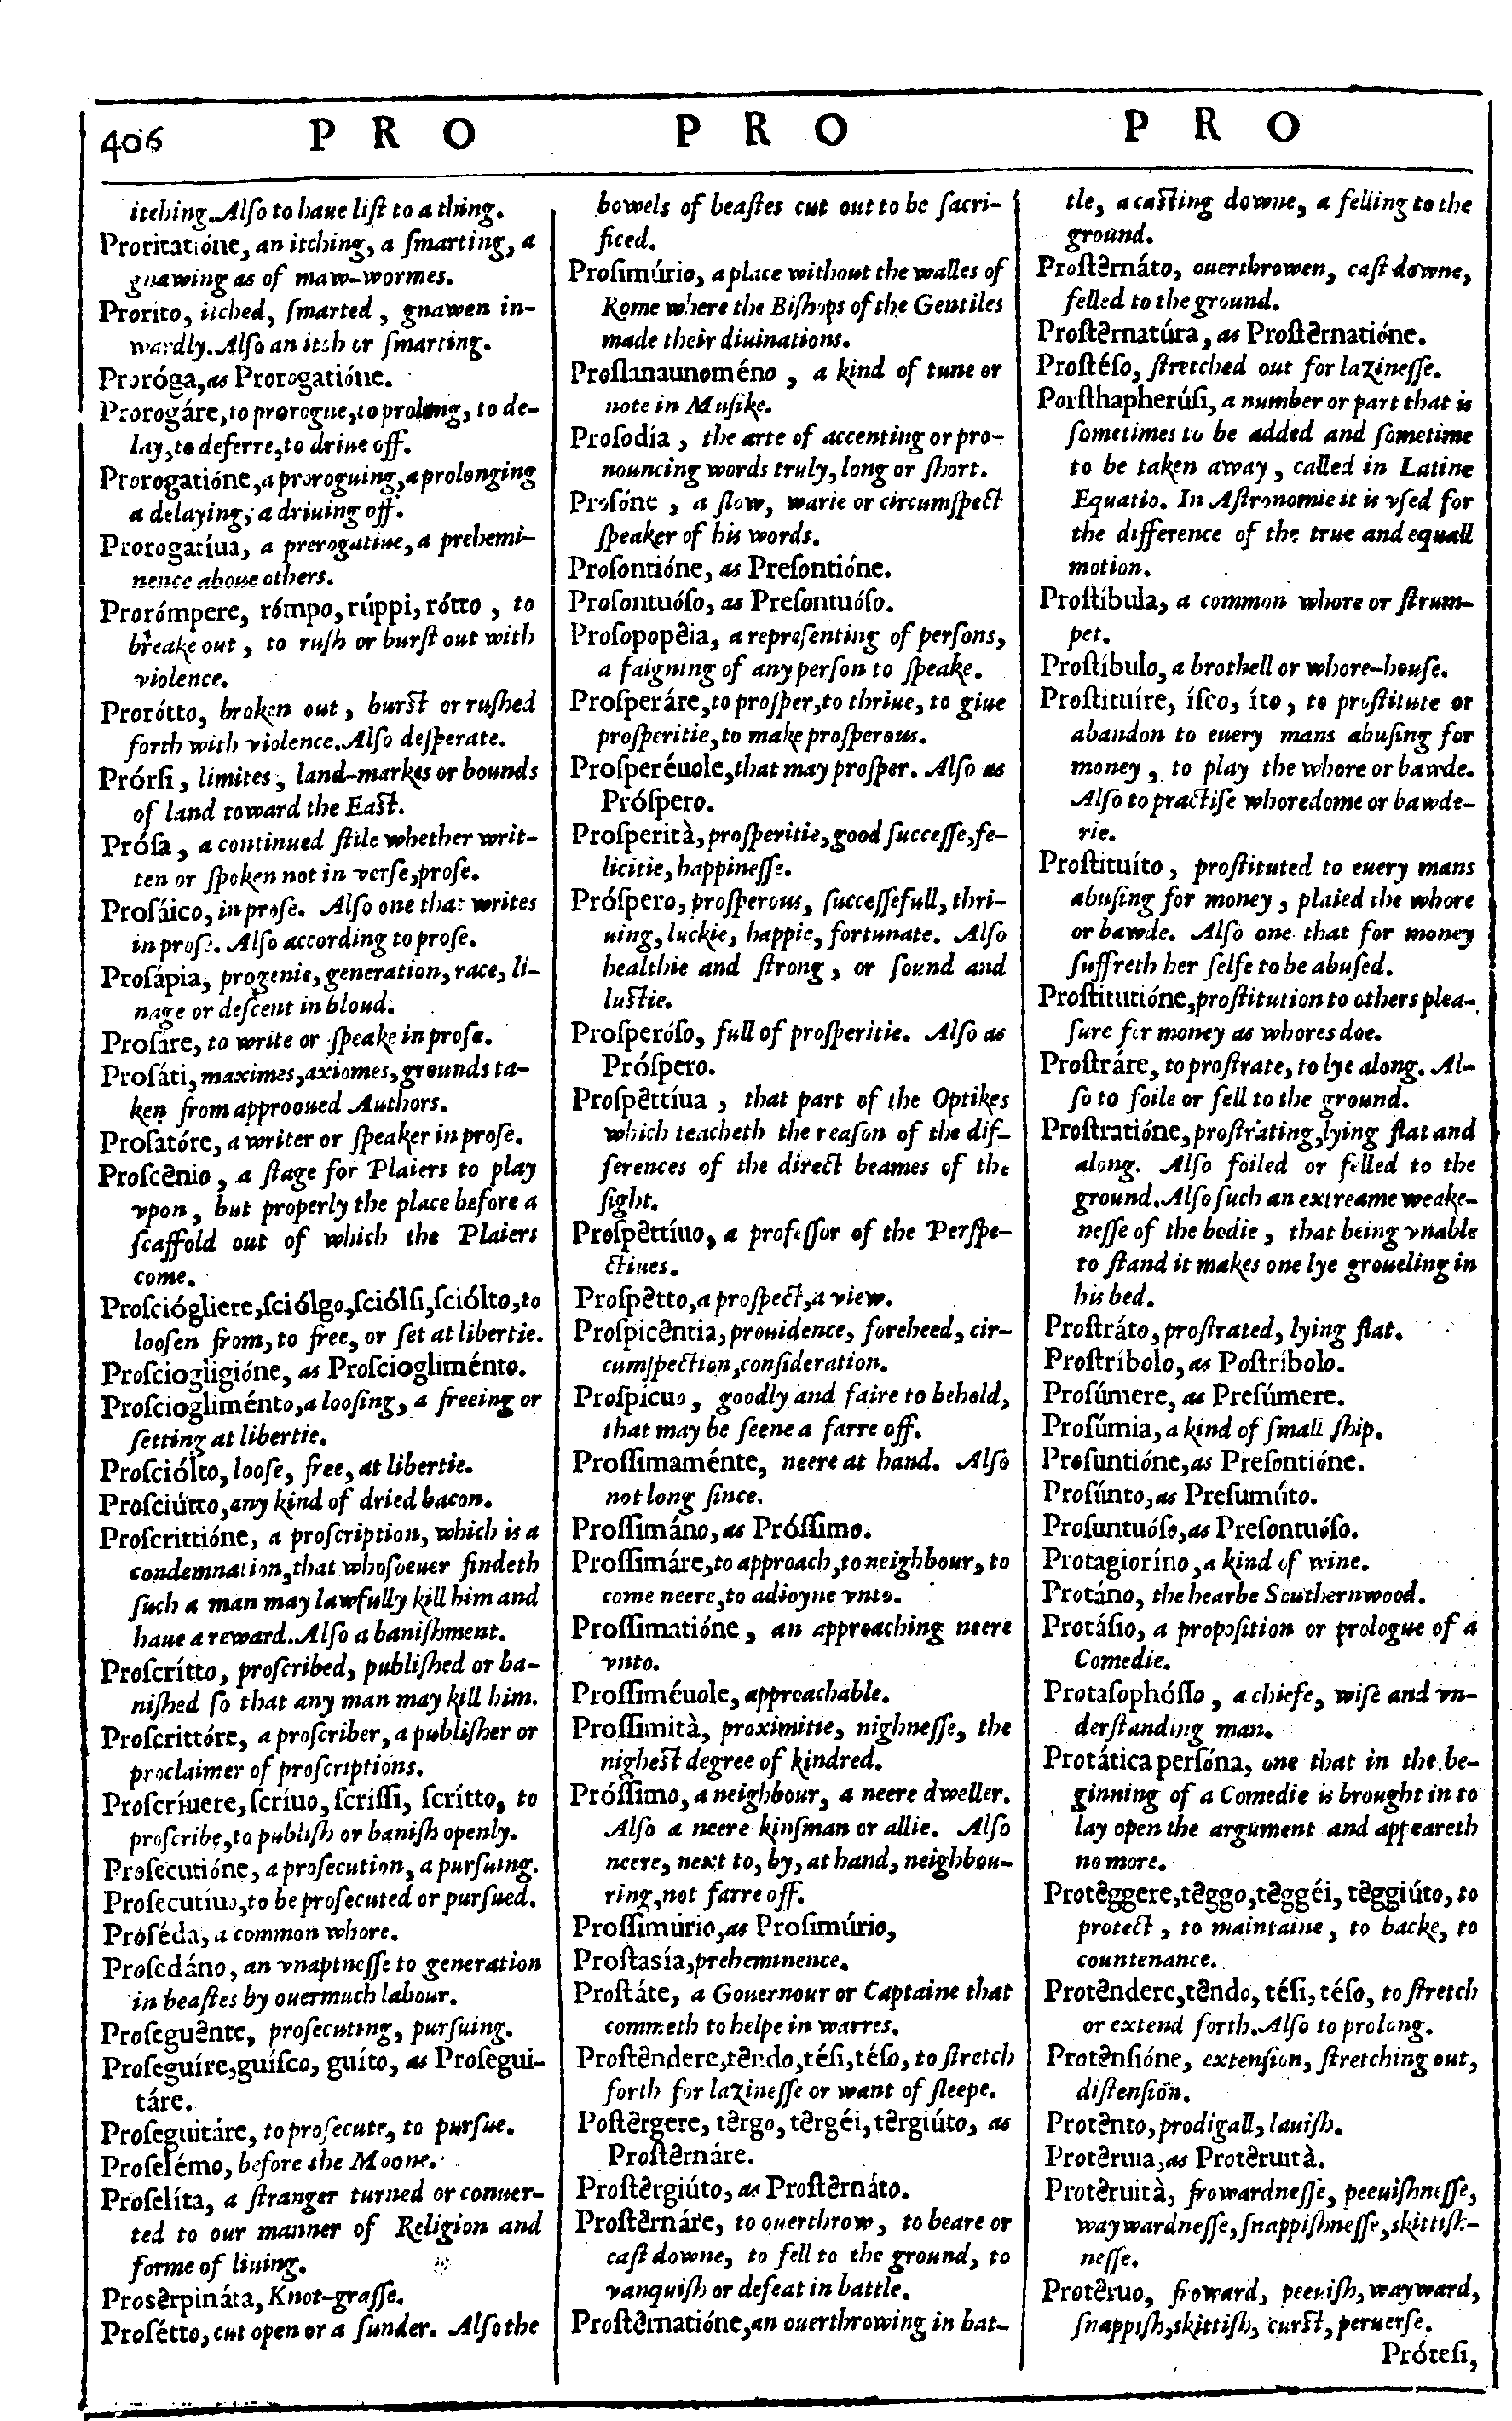 406 P R O P R O P R O
itching. Alſo to haue liſt to a thing.
Proritatióne, an itching, a ſmarting, a
gnawing as of maw-wormes.
Prorito, itched, ſmarted, gnawen in-
wardly. Alſo an itch or ſmarting.
Proróga, as Prorogatióne.
Prorogáre, to prorogue, to prolong, to de-
lay, to deferre, to driue off.
Prorogatióne, a proroguing, a prolonging
a delaying, a driuing off.
Prorogatíua, a prerogatiue, a prehemi-
nence aboue others.
Prorómpere, rómpo, rúppi, rótto, to
breake out, to ruſh or burſt out with
violence.
Prorótto, broken out, burſt or ruſhed
forth with violence. Alſo deſperate.
Prórſi, limites, land-markes or bounds
of land toward the Eaſt.
Próſa, a continued ſtile whether writ-
ten or ſpoken not in verſe, proſe.
Proſáico, in proſe. Alſo one that writes
in proſe. Alſo according to proſe.
Proſápia, progenie, generation, race, li-
nage or deſcent in bloud.
Proſáre, to write or ſpeake in proſe.
Proſáti, maximes, axiomes, grounds ta-
ken from approoued Authors.
Proſatóre, a writer or ſpeaker in proſe.
Proſcênio, a ſtage for Plaiers to play
vpon, but properly the place before a
ſcaffold out of which the Plaiers
come.
Proſciógliere, ſciólgo, ſciólſi, ſciólto, to
looſen from, to free, or ſet at libertie.
Proſciogligióne, as Proſciogliménto.
Proſciogliménto, a looſing, a freeing or
ſetting at libertie.
Proſciólto, looſe, free, at libertie.
Proſciútto, any kind of dried bacon.
Proſcrittióne, a proſcription, which is a
condemnation, that whoſoeuer findeth
ſuch a man may lawfully kill him and
haue a reward. Alſo a baniſhment.
Proſcrítto, proſcribed, publiſhed or ba-
niſhed ſo that any man may kill him.
Proſcrittóre, a proſcriber, a publiſher or
proclaimer of proſcriptions.
Proſcríuere, ſcríuo, ſcriſſi, ſcrítto, to
proſcribe, to publiſh or baniſh openly.
Proſecutióne, a proſecution, a purſuing.
Proſecutíuo, to be proſecuted or purſued.
Proſéda, a common whore.
Proſedáno, an vnaptneſſe to generation
in beaſtes by ouermuch labour.
Proſeguênte, proſecuting, purſuing.
Proſeguíre, guíſco, guíto, as Proſegui-
táre.
Proſeguitáre, to proſecute, to purſue.
Proſelémo, before the Moone.
Proſelíta, a ſtranger turned or conuer-
ted to our manner of Religion and
forme of liuing.
Prosêrpináta, Knot-graſſe.
Proſétto, cut open or a ſunder. Alſo the
bowels of beaſtes cut out to be ſacri-
ficed.
Proſimúrio, a place without the walles of
Rome where the Biſhops of the Gentiles
made their diuinations.
Proſlanaunoméno, a kind of tune or
note in Muſike.
Proſodía, the arte of accenting or pro-
nouncing words truly, long or ſhort.
Proſóne, a ſlow, warie or circumſpect
ſpeaker of his words.
Proſontióne, as Preſontióne.
Proſontuóſo, as Preſontuóſo.
Proſopopêia, a repreſenting of perſons,
a faigning of any perſon to ſpeake.
Proſperáre, to proſper, to thriue, to giue
proſperitie, to make proſperous.
Proſperéuole, that may proſper. Alſo as
Próſpero.
Proſperità, proſperitie, good ſucceſſe, fe-
licitie, happineſſe.
Próſpero, proſperous, ſucceſſefull, thri-
uing, luckie, happie, fortunate. Alſo
healthie and ſtrong, or ſound and
luſtie.
Proſperóſo, full of proſperitie. Alſo as
Próſpero.
Proſpêttíua, that part of the Optikes
which teacheth the reaſon of the dif-
ferences of the direct beames of the
ſight.
Proſpêttíuo, a profeſſor of the Perſpe-
ctiues.
Proſpêtto, a proſpect, a view.
Proſpicêntia, prouidence, foreheed, cir-
cumſpection, conſideration.
Proſpícuo, goodly and faire to behold,
that may be ſeene a farre off.
Proſſimaménte, neere at hand. Alſo
not long ſince.
Proſſimáno, as Próſſimo.
Proſſimáre, to approach, to neighbour, to
come neere, to adioyne vnto.
Proſſimatióne, an approaching neere
vnto.
Proſſiméuole, approachable.
Proſſimità, proximitie, nighneſſe, the
nigheſt degree of kindred.
Próſſimo, a neighbour, a neere dweller.
Alſo a neere kinſman or allie. Alſo
neere, next to, by, at hand, neighbou-
ring, not farre off.
Proſſimúrio, as Proſimúrio,
Proſtasía, preheminence.
Proſtáte, a Gouernour or Captaine that
commeth to helpe in warres.
Proſtêndere, têndo, téſi, téſo, to ſtretch
forth for lazineſſe or want of ſleepe.
Poſtêrgere, têrgo, têrgéi, têrgiúto, as
Proſtêrnáre.
Proſtêrgiúto, as Proſtêrnáto.
Proſtêrnáre, to ouerthrow, to beare or
caſt downe, to fell to the ground, to
vanquiſh or defeat in battle.
Proſtêrnatióne, an ouerthrowing in bat-
tle, a caſting downe, a felling to the
ground.
Proſtêrnáto, ouerthrowen, caſt downe,
felled to the ground.
Proſtêrnatúra, as Proſtêrnatióne.
Proſtéſo, ſtretched out for lazineſſe.
Porſthapherúſi, a number or part that is
ſometimes to be added and ſometime
to be taken away, called in Latine
Equatio. In Aſtronomie it is vſed for
the difference of the true and equall
motion.
Proſtíbula, a common whore or ſtrum-
pet.
Proſtíbulo, a brothell or whore-houſe.
Proſtituíre, íſco, íto, to proſtitute or
abandon to euery mans abuſing for
money, to play the whore or bawde.
Alſo to practiſe whoredome or bawde-
rie.
Proſtituíto, proſtituted to euery mans
abuſing for money, plaied the whore
or bawde. Alſo one that for money
ſuffreth her ſelfe to be abuſed.
Proſtitutióne, proſtitution to others plea-
ſure for money as whores doe.
Proſtráre, to proſtrate, to lye along. Al-
ſo to foile or fell to the ground.
Proſtratióne, proſtrating, lying flat and
along. Alſo foiled or felled to the
ground. Alſo ſuch an extreame weake-
neſſe of the bodie, that being vnable
to ſtand it makes one lye groueling in
his bed.
Proſtráto, proſtrated, lying flat.
Proſtríbolo, as Poſtríbolo.
Proſúmere, as Preſúmere.
Proſúmia, a kind of ſmall ſhip.
Proſuntióne, as Preſontióne.
Proſúnto, as Preſumúto.
Proſuntuóſo, as Preſontuóſo.
Protagioríno, a kind of wine.
Protáno, the hearbe Southernwood.
Protáſio, a propoſition or prologue of a
Comedie.
Protaſophóſſo, a chiefe, wiſe and vn-
derſtanding man.
Protática perſóna, one that in the be-
ginning of a Comedie is brought in to
lay open the argument and appeareth
no more.
Protêggere, têggo, têggéi, têggiúto, to
protect, to maintaine, to backe, to
countenance.
Protêndere, têndo, téſi, téſo, to ſtretch
or extend forth. Alſo to prolong.
Protênſióne, extenſion, ſtretching out,
diſtenſion.
Protênto, prodigall, lauiſh.
Protêruia, as Protêruità.
Protêruità, frowardneſſe, peeuiſhneſſe,
waywardneſſe, ſnappiſhneſſe, skittiſh-
neſſe.
Protêruo, froward, peeuiſh, wayward,
ſnappiſh, skittiſh, curſt, peruerſe.
Próteſi,